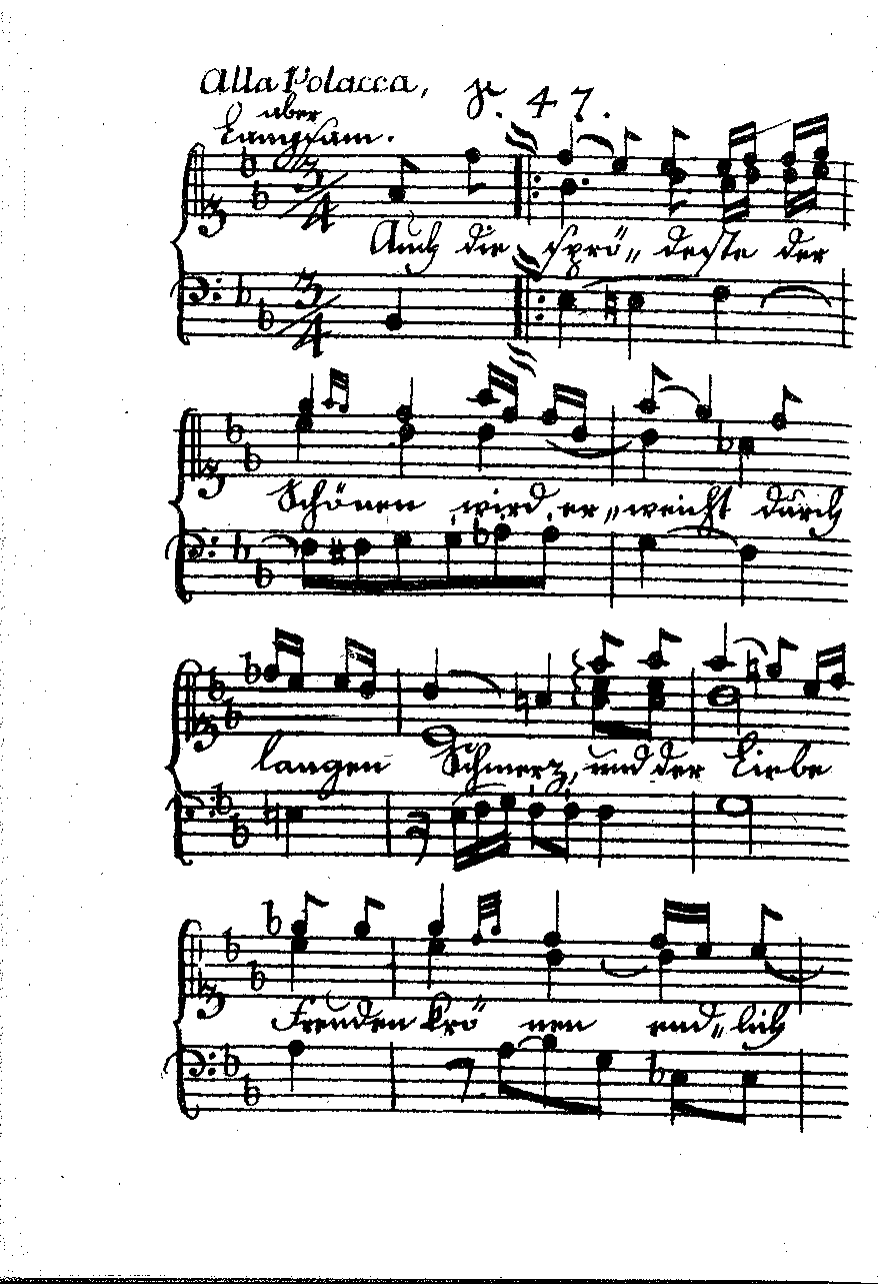 Alla Polacca, N. 47.
aber
Langsam.
Auch die sprö„ deste der
Schönen wird er„weicht durch
langen Schmerz, und der Liebe
Freuden krö nen end„lich